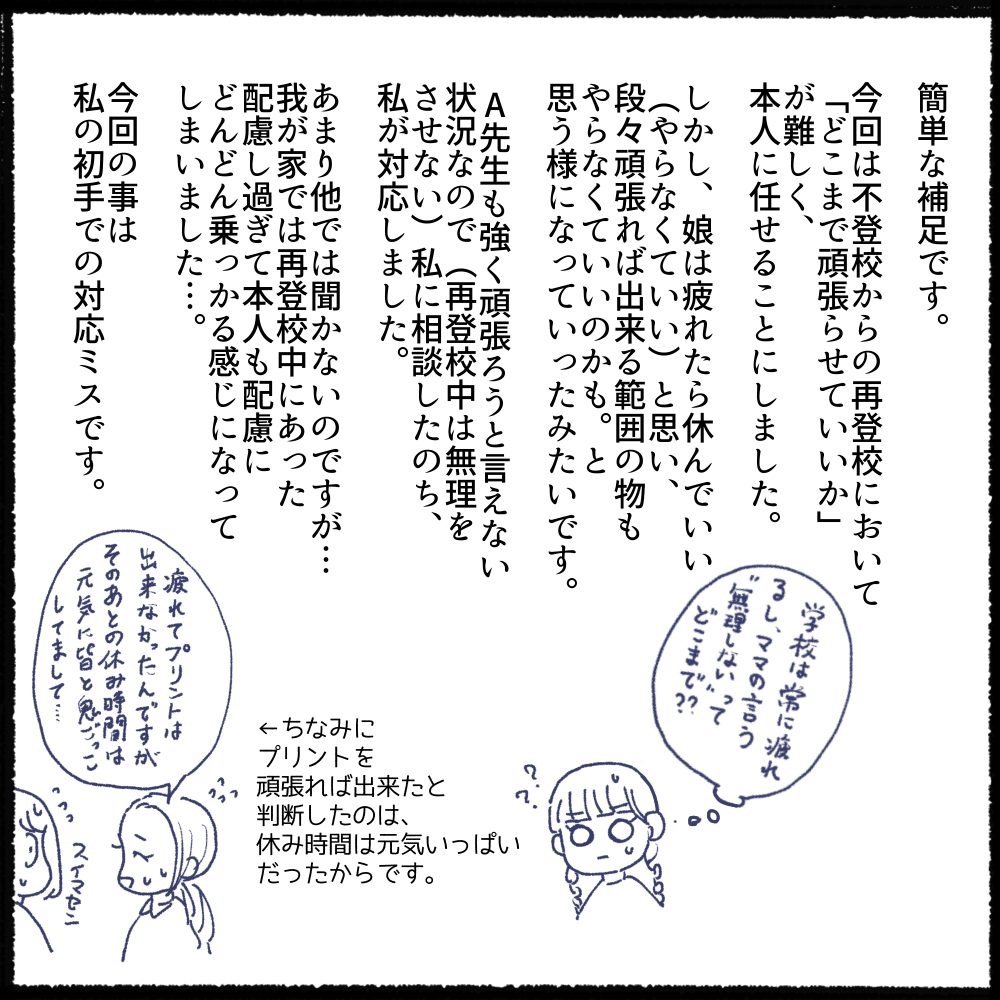 簡単な補足です。
今回は不登校からの再登校において
「どこまで頑張らせていいか」
が難しく、
本人に任せることにしました。
しかし、娘は疲れたら休んでいい
（やらなくていい）と思い、
段々頑張れば出来る範囲の物も
やらなくていいのかも。と
思う様になっていったみたいです。
A先生も強く頑張ろうと言えない
状況なので（再登校中は無理を
させない）私に相談したのち、
私が対応しました。
あまり他では聞かないのですが…
我が家では再登校中にあった
配慮し過ぎて本人も配慮に
どんどん乗っかる感じになって
しまいました…。
今回の事は
私の初手での対応ミスです。
学校は常に疲れ
るし、ママの言う
"無理しない"って
どこまで??
??
←ちなみに
プリントを
頑張れば出来たと
判断したのは、
休み時間は元気いっぱい
だったからです。
疲れてプリントは
出来なかったんですが
そのあとの休み時間は
元気に皆と鬼ごっこ
してまして…
スイマセン